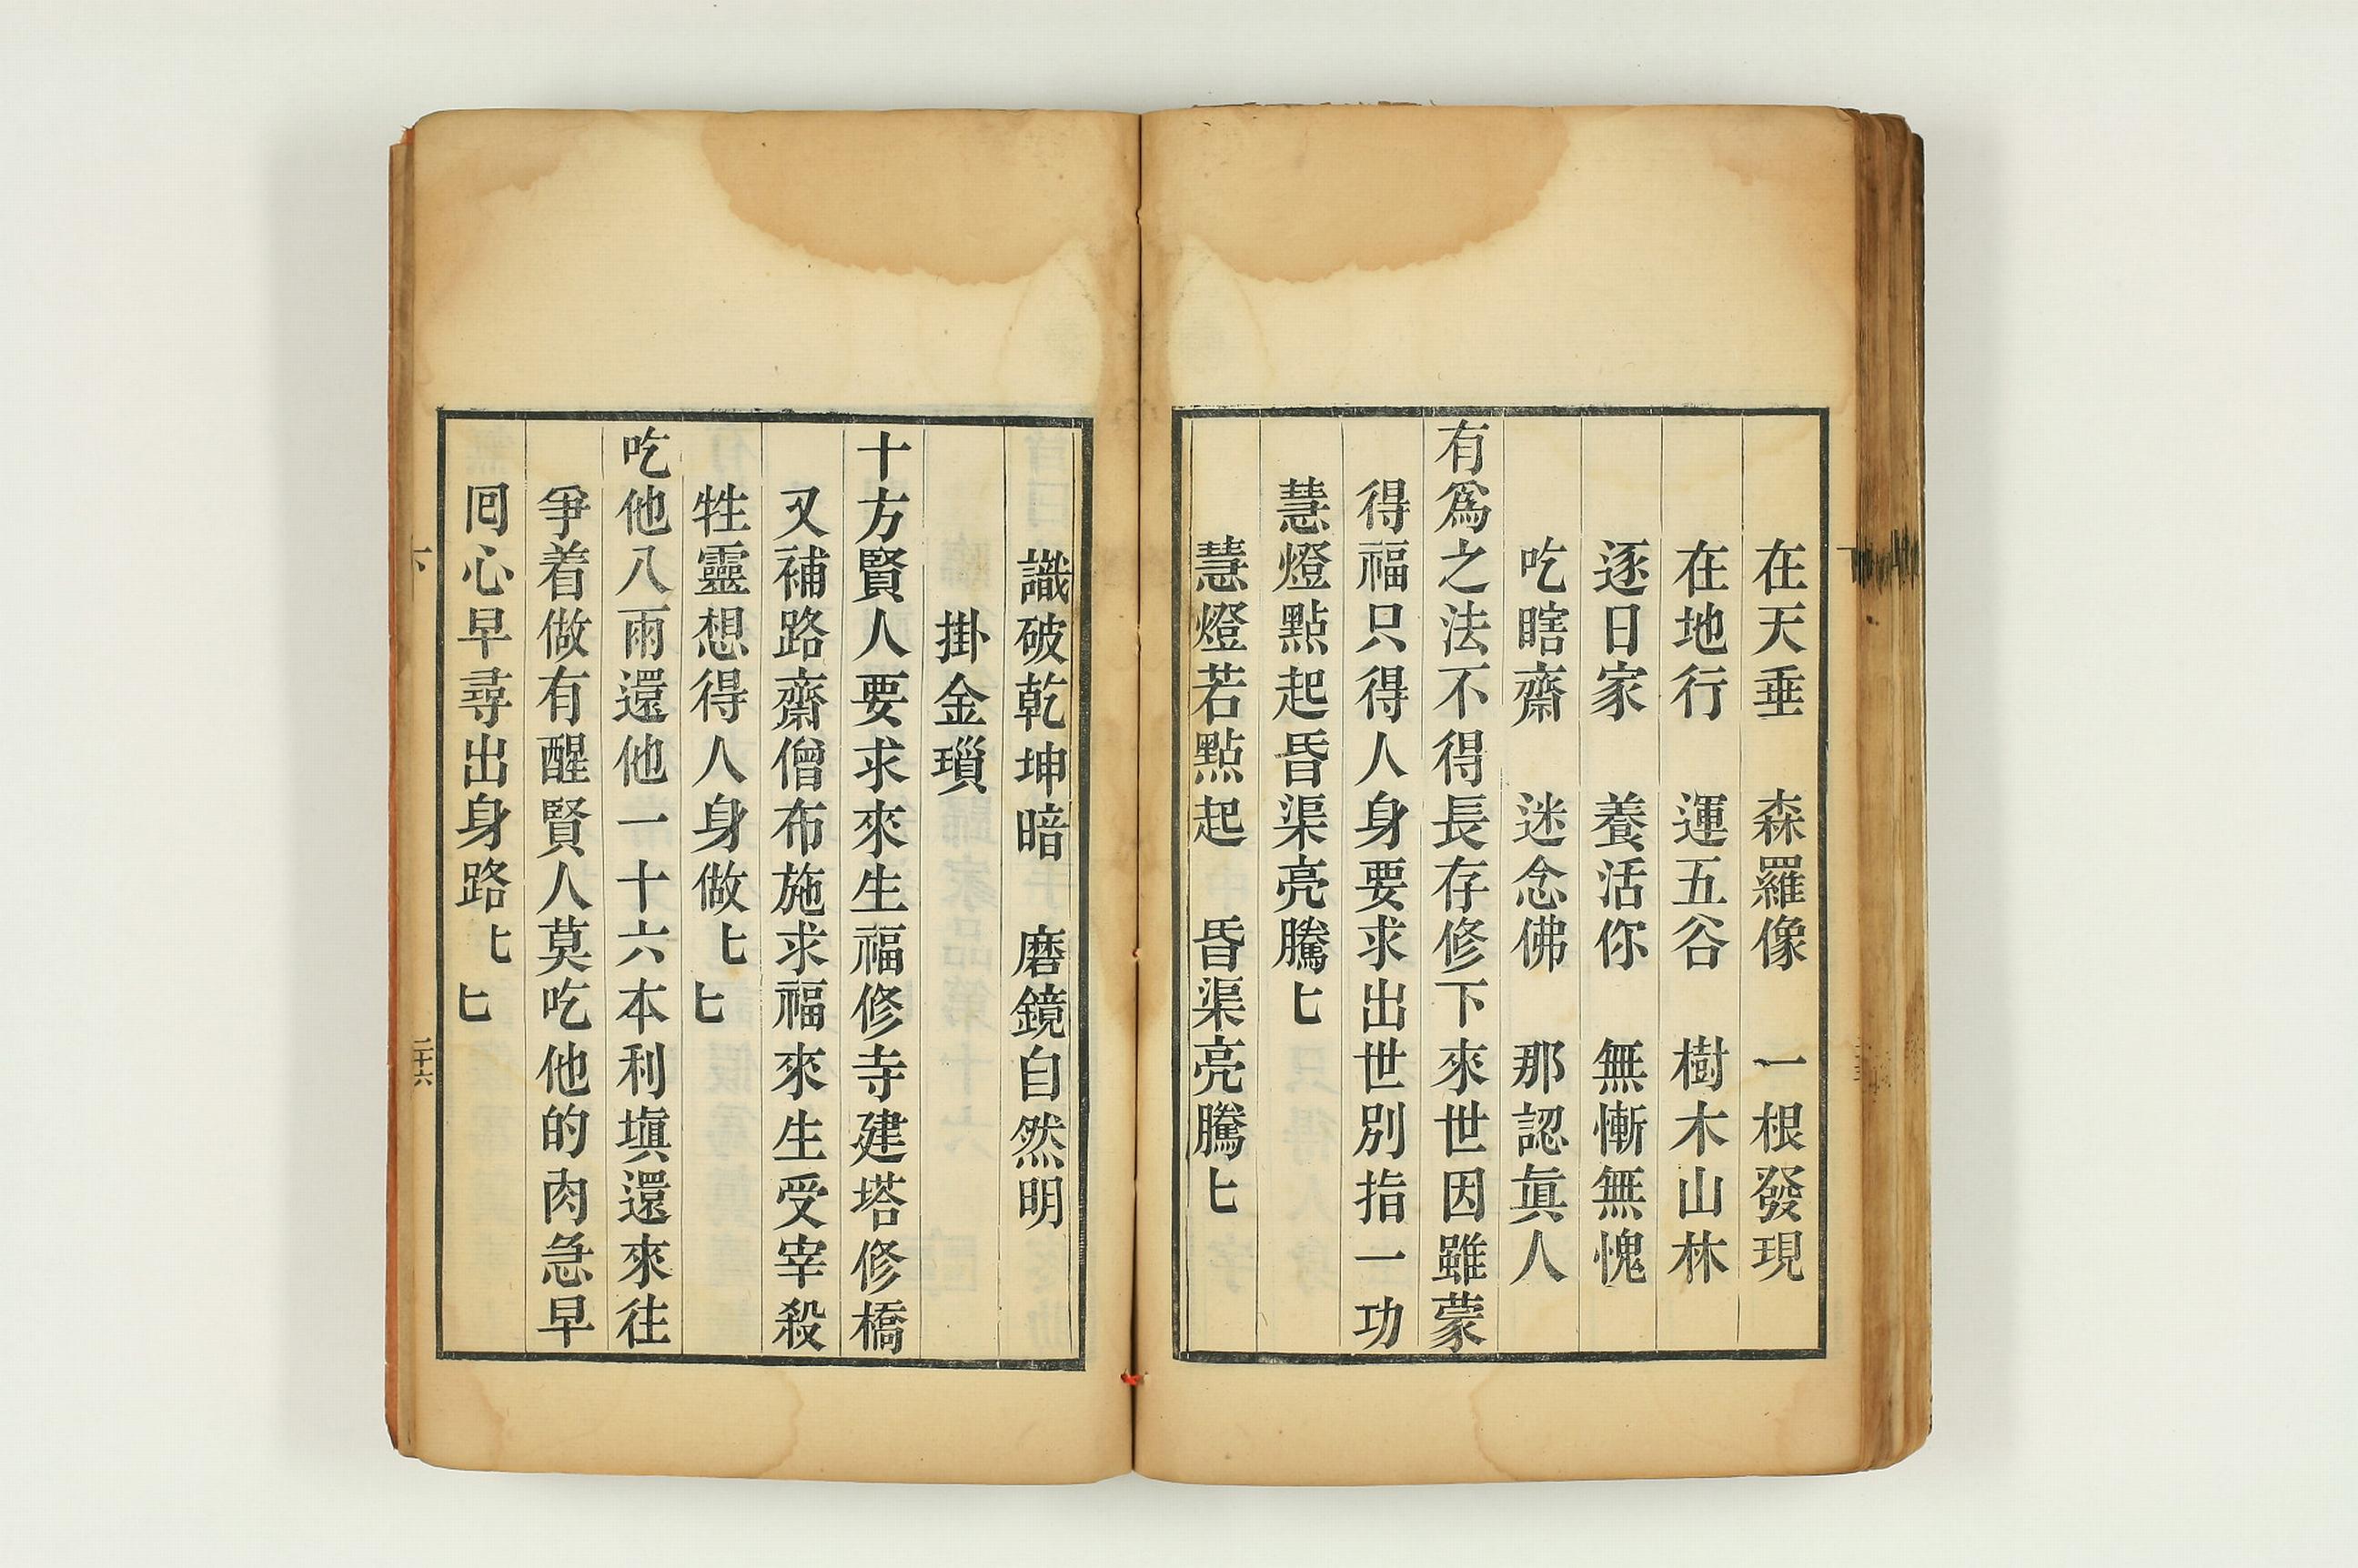 在天垂　森羅像　一根發現
在地行　運五谷　樹木山林
逐日家　養活你　無慚無愧
吃瞎齋　迷念佛　那認眞人
有爲之法不得長存修下來世因雖蒙
得福只得人身要求出世別指一功
慧燈點起昏渠亮騰〻
慧燈若點起　昏渠亮騰〻
識破乾坤暗　磨鏡自然明
掛金瑣
十方賢人要求來生福修寺建塔修橋
又補路齋僧布施求福來生受宰殺
牲靈想得人身做〻〻
吃他八兩還他一十六本利塡還來往
爭着做有醒賢人莫吃他的肉急早
囘心早尋出身路〻〻
下
二十六